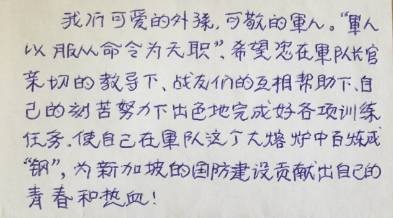 我们可爱的外孫,可敬的軍人。“軍人
以服从命令为天职”,希望您在軍队长官
亲切的教导下、战友们的互相帮助下、自
己的刻苦努力下出色地完成好各项训练
任务.使自己在軍队这个大熔炉中百炼成
“钢”,为新加坡的国防建设贡献出自己的
青春和热血!